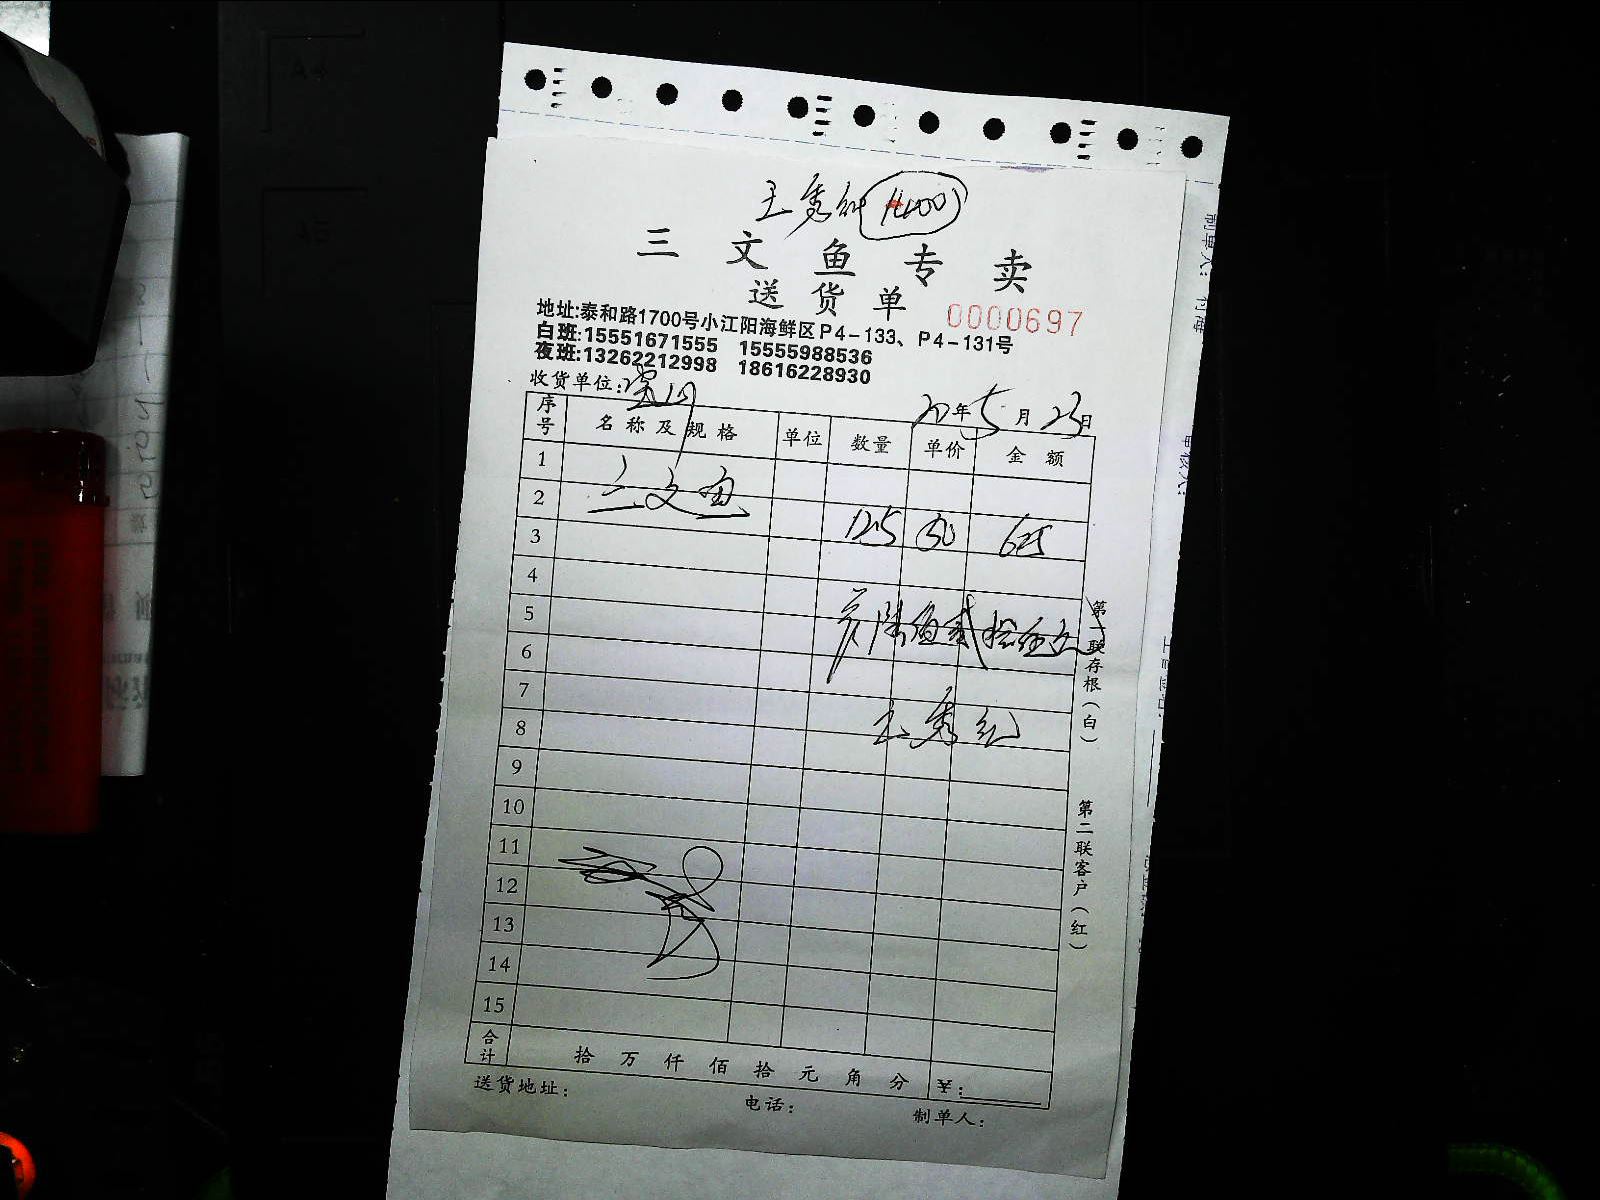 王秀红
三文鱼专卖
送货单 0000697
地址:泰和路1700号小江阳海鲜区P4-133、P4-131号
白班:15551671555 15555988536
夜班:13262212998 18616228930
收货单位:
20年5月23日
序号 名称及规格 单位 数量 单价 金额
1
2 三文鱼
3 12.5 50 625
4
5 陆佰贰拾伍元
6
7
8 王秀红
9
10
11
12
13
14
15
合计 拾 万 仟 佰 拾 元 角 分 ￥:
送货地址: 电话: 制单人:
第一联存根(白)
第二联客户(红)
制单人:
审核人: